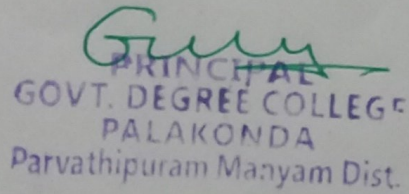 PRINCIPAL
GOVT. DEGREE COLLEGE
PALAKONDA
Parvathipuram Manyam Dist.